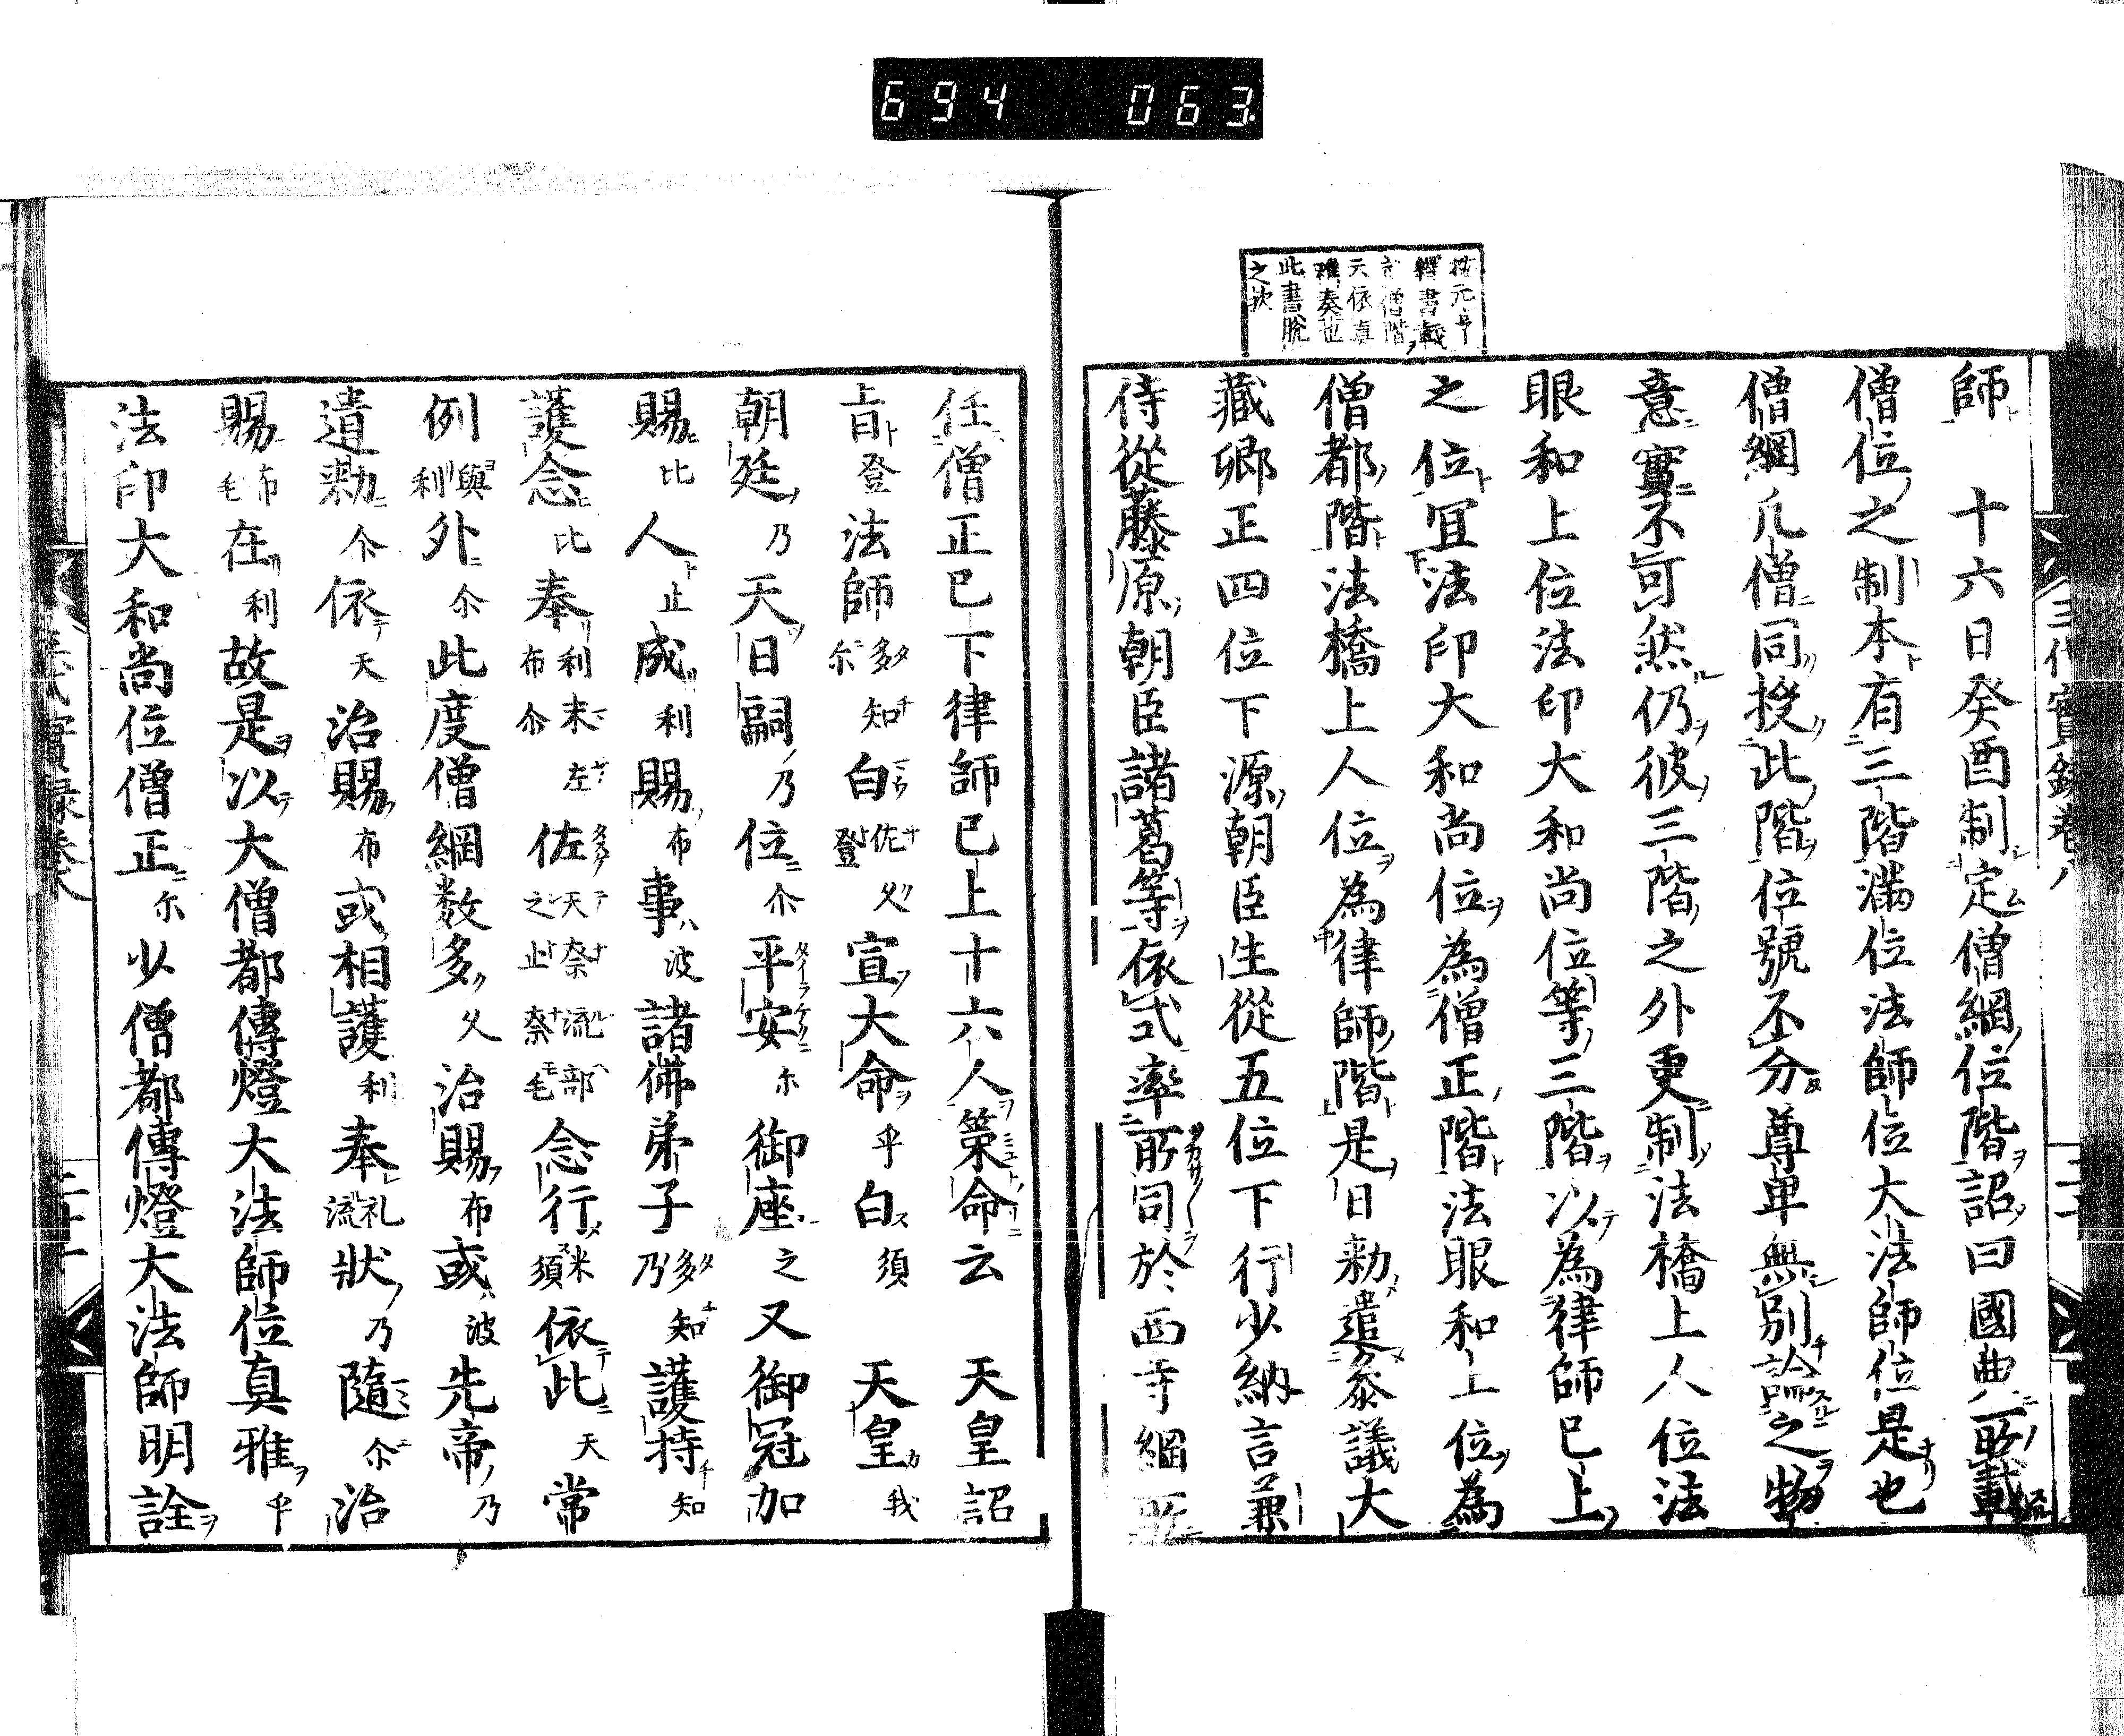 694 063
按元亨
釋書載
之僧階
天依真
雅奏也
此書脫
之歟
三代實錄卷八
師　十六日癸酉制定僧綱位階詔曰國典所載
僧位之制本有三階滿位法師位大法師位是也
僧綱凡僧同授此階位號不分尊卑無別論之物
意實不可然仍彼三階之外更制法橋上人位法
眼和上位法印大和尚位等三階以為律師已上
之位宜法印大和尚位為僧正階法眼和上位為
僧都階法橋上人位為律師階是日勅遣參議大
藏卿正四位下源朝臣生從五位下行少納言兼
侍從藤原朝臣諸葛等依式率所司於西寺綱所
任僧正已下律師已上十六人策命云　天皇詔
旨登法師多知尓白佐登久宣大命乎白須　天皇我
朝廷乃天日嗣乃位尓平安尓御座之又御冠加
賜比人止成利賜布事波諸佛弟子多知乃護持知
護念比奉利布末尓左佐天之奈止流奈部毛念行米須依此天常
例與利外尓此度僧綱数多久治賜布或波先帝乃
遺勅尓依天治賜布或相護利奉礼流狀乃隨尓治
賜布毛在利故是以大僧都傳燈大法師位真雅乎
法印大和尚位僧正尓少僧都傳燈大法師明詮